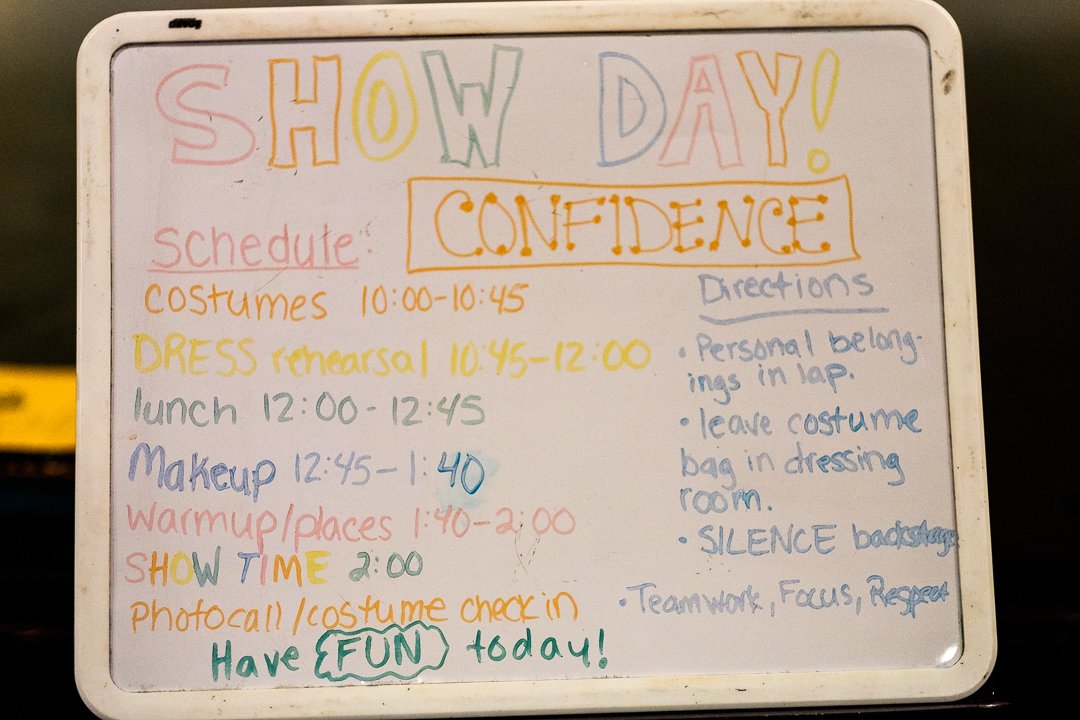 SHOW DAY!
CONFIDENCE
Schedule:
costumes 10:00-10:45
DRESS rehearsal 10:45-12:00
lunch 12:00-12:45
Makeup 12:45-1:40
warmup/places 1:40-2:00
SHOW TIME 2:00
Photocall/costume check in
Have FUN today!
Directions
• Personal belong-
ings in lap.
• leave costume
bag in dressing
room.
• SILENCE backstage.
• Teamwork, Focus, Respect